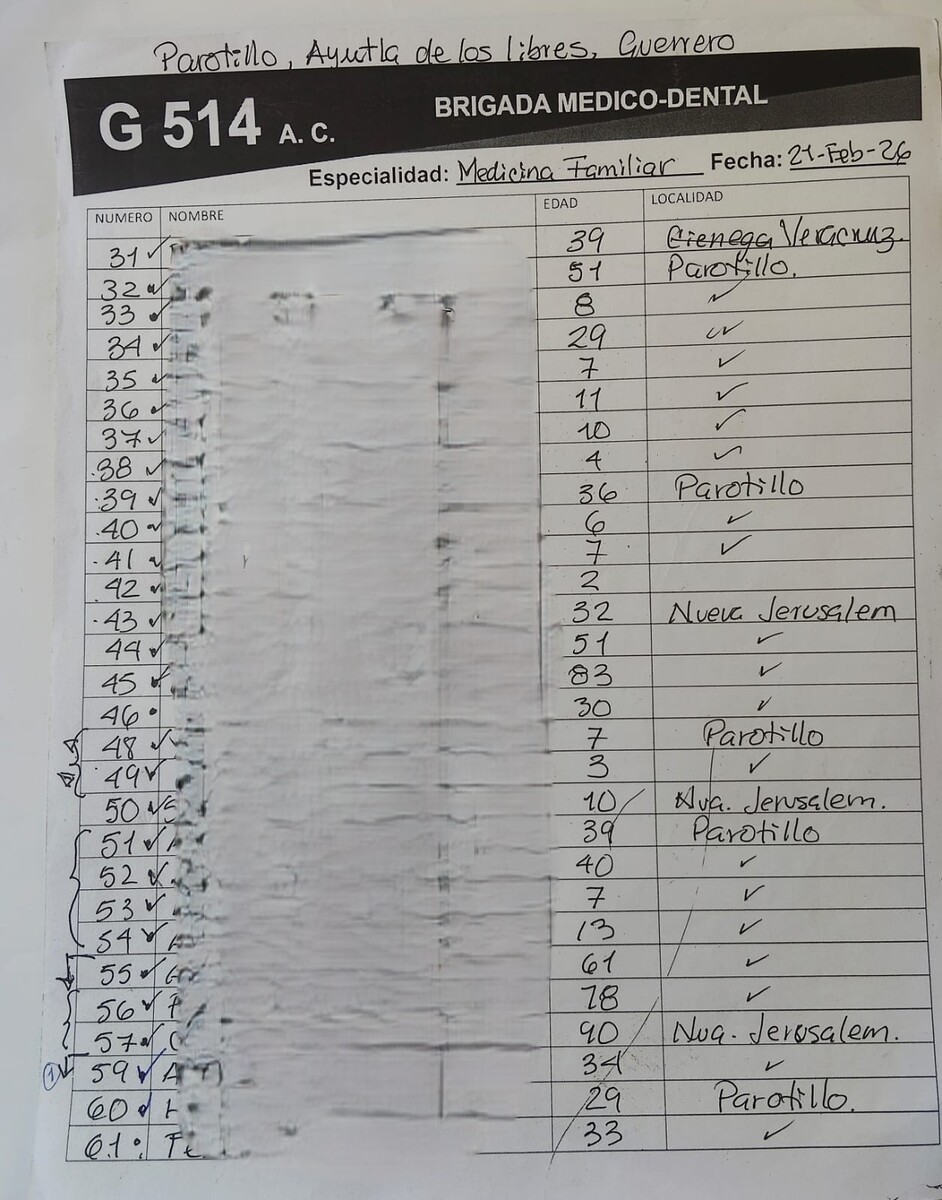 Parotillo, Ayutla de los libres, Guerrero
G 514 A. C. BRIGADA MEDICO-DENTAL
Especialidad: Medicina Familiar Fecha: 21-Feb-26
NUMERO NOMBRE EDAD LOCALIDAD
31 ✓ 39 Cienega Veracruz.
32 51 Parotillo.
33 8 ✓
34 ✓ 29 ✓
35 ✓ 7 ✓
36 ✓ 11 ✓
37 ✓ 10 ✓
38 ✓ 4 ✓
39 ✓ 36 Parotillo
40 ✓ 6 ✓
41 ✓ 7 ✓
42 ✓ 2
43 ✓ 32 Nueva Jerusalem
44 ✓ 51 ✓
45 ✓ 83 ✓
46 30 ✓
48 ✓ 7 Parotillo
49 ✓ 3 ✓
50 ✓ 10 Nva. Jerusalem.
51 ✓ 39 Parotillo
52 ✓ 40 ✓
53 ✓ 7 ✓
54 ✓ 13 ✓
55 ✓ 61 ✓
56 ✓ 78 ✓
57 ✓ 90 Nva. Jerusalem.
1 59 ✓ 34 ✓
60 ✓ 29 Parotillo.
61 33 ✓